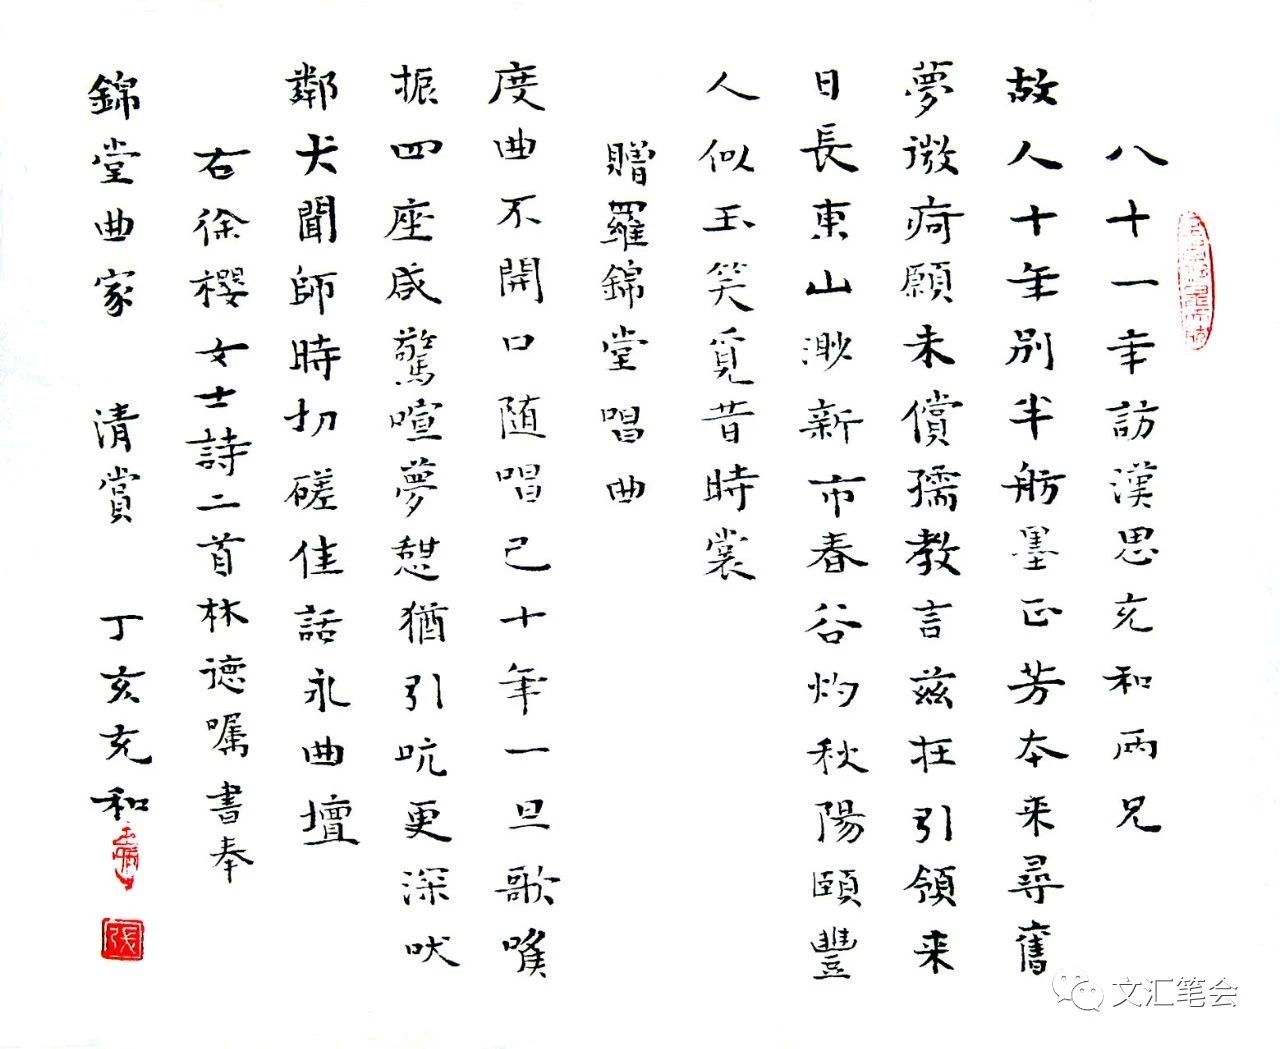 八十一年訪漢思充和兩兄
故人十年别半舫墨正芳本来尋舊
夢微疴願未償孺教言兹在引領来
日長東山渺新市春谷灼秋陽頤豐
人似玉笑覓昔時裳
贈羅錦堂唱曲
度曲不開口随唱已十年一旦歌喉
振四座咸驚喧夢憇猶引吭更深吠
鄰犬聞師時切磋佳話永曲壇
右徐櫻女士詩二首林德嘱書奉
錦堂曲家 清賞 丁亥充和
文汇笔会